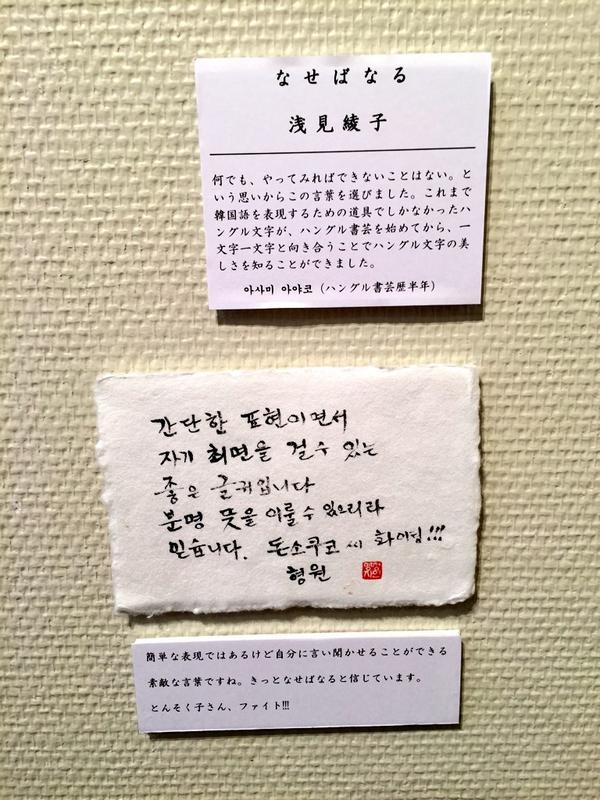 なせばなる
浅見綾子
何でも、やってみればできないことはない。と
いう思いからこの言葉を選びました。これまで
韓国語を表現するための道具でしかなかったハ
ングル文字が、ハングル書芸を始めてから、一
文字一文字と向き合うことでハングル文字の美
しさを知ることができました。
아사미 아야코（ハングル書芸歴半年）
간단한 표현이면서
자기 최면을 걸 수 있는
좋은 글귀입니다
분명 뜻을 이룰 수 있으리라
믿습니다. 돈소쿠코 씨 화이팅!!!
형원
簡単な表現ではあるけど自分に言い聞かせることができる
素敵な言葉ですね。きっとなせばなると信じています。
とんそく子さん、ファイト!!!